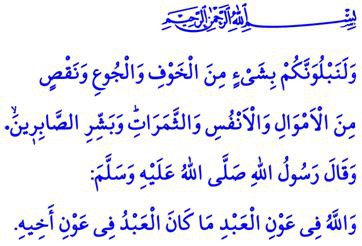 بِسْمِ اللهِ الرَّحْمٰنِ الرَّحِيمِ
وَلَنَبْلُوَنَّكُمْ بِشَىْءٍ مِنَ الْخَوْفِ وَالْجُوعِ وَنَقْصٍ
مِنَ الْاَمْوَالِ وَالْاَنْفُسِ وَالثَّمَرَاتِۜ وَبَشِّرِ الصَّابِر۪ينَۙ.
وَقَالَ رَسُولُ اللهِ صَلَّى اللهُ عَلَيْهِ وَسَلَّمَ:
وَاللَّهُ فِى عَوْنِ الْعَبْدِ مَا كَانَ الْعَبْدُ فِى عَوْنِ أَخِيهِ.